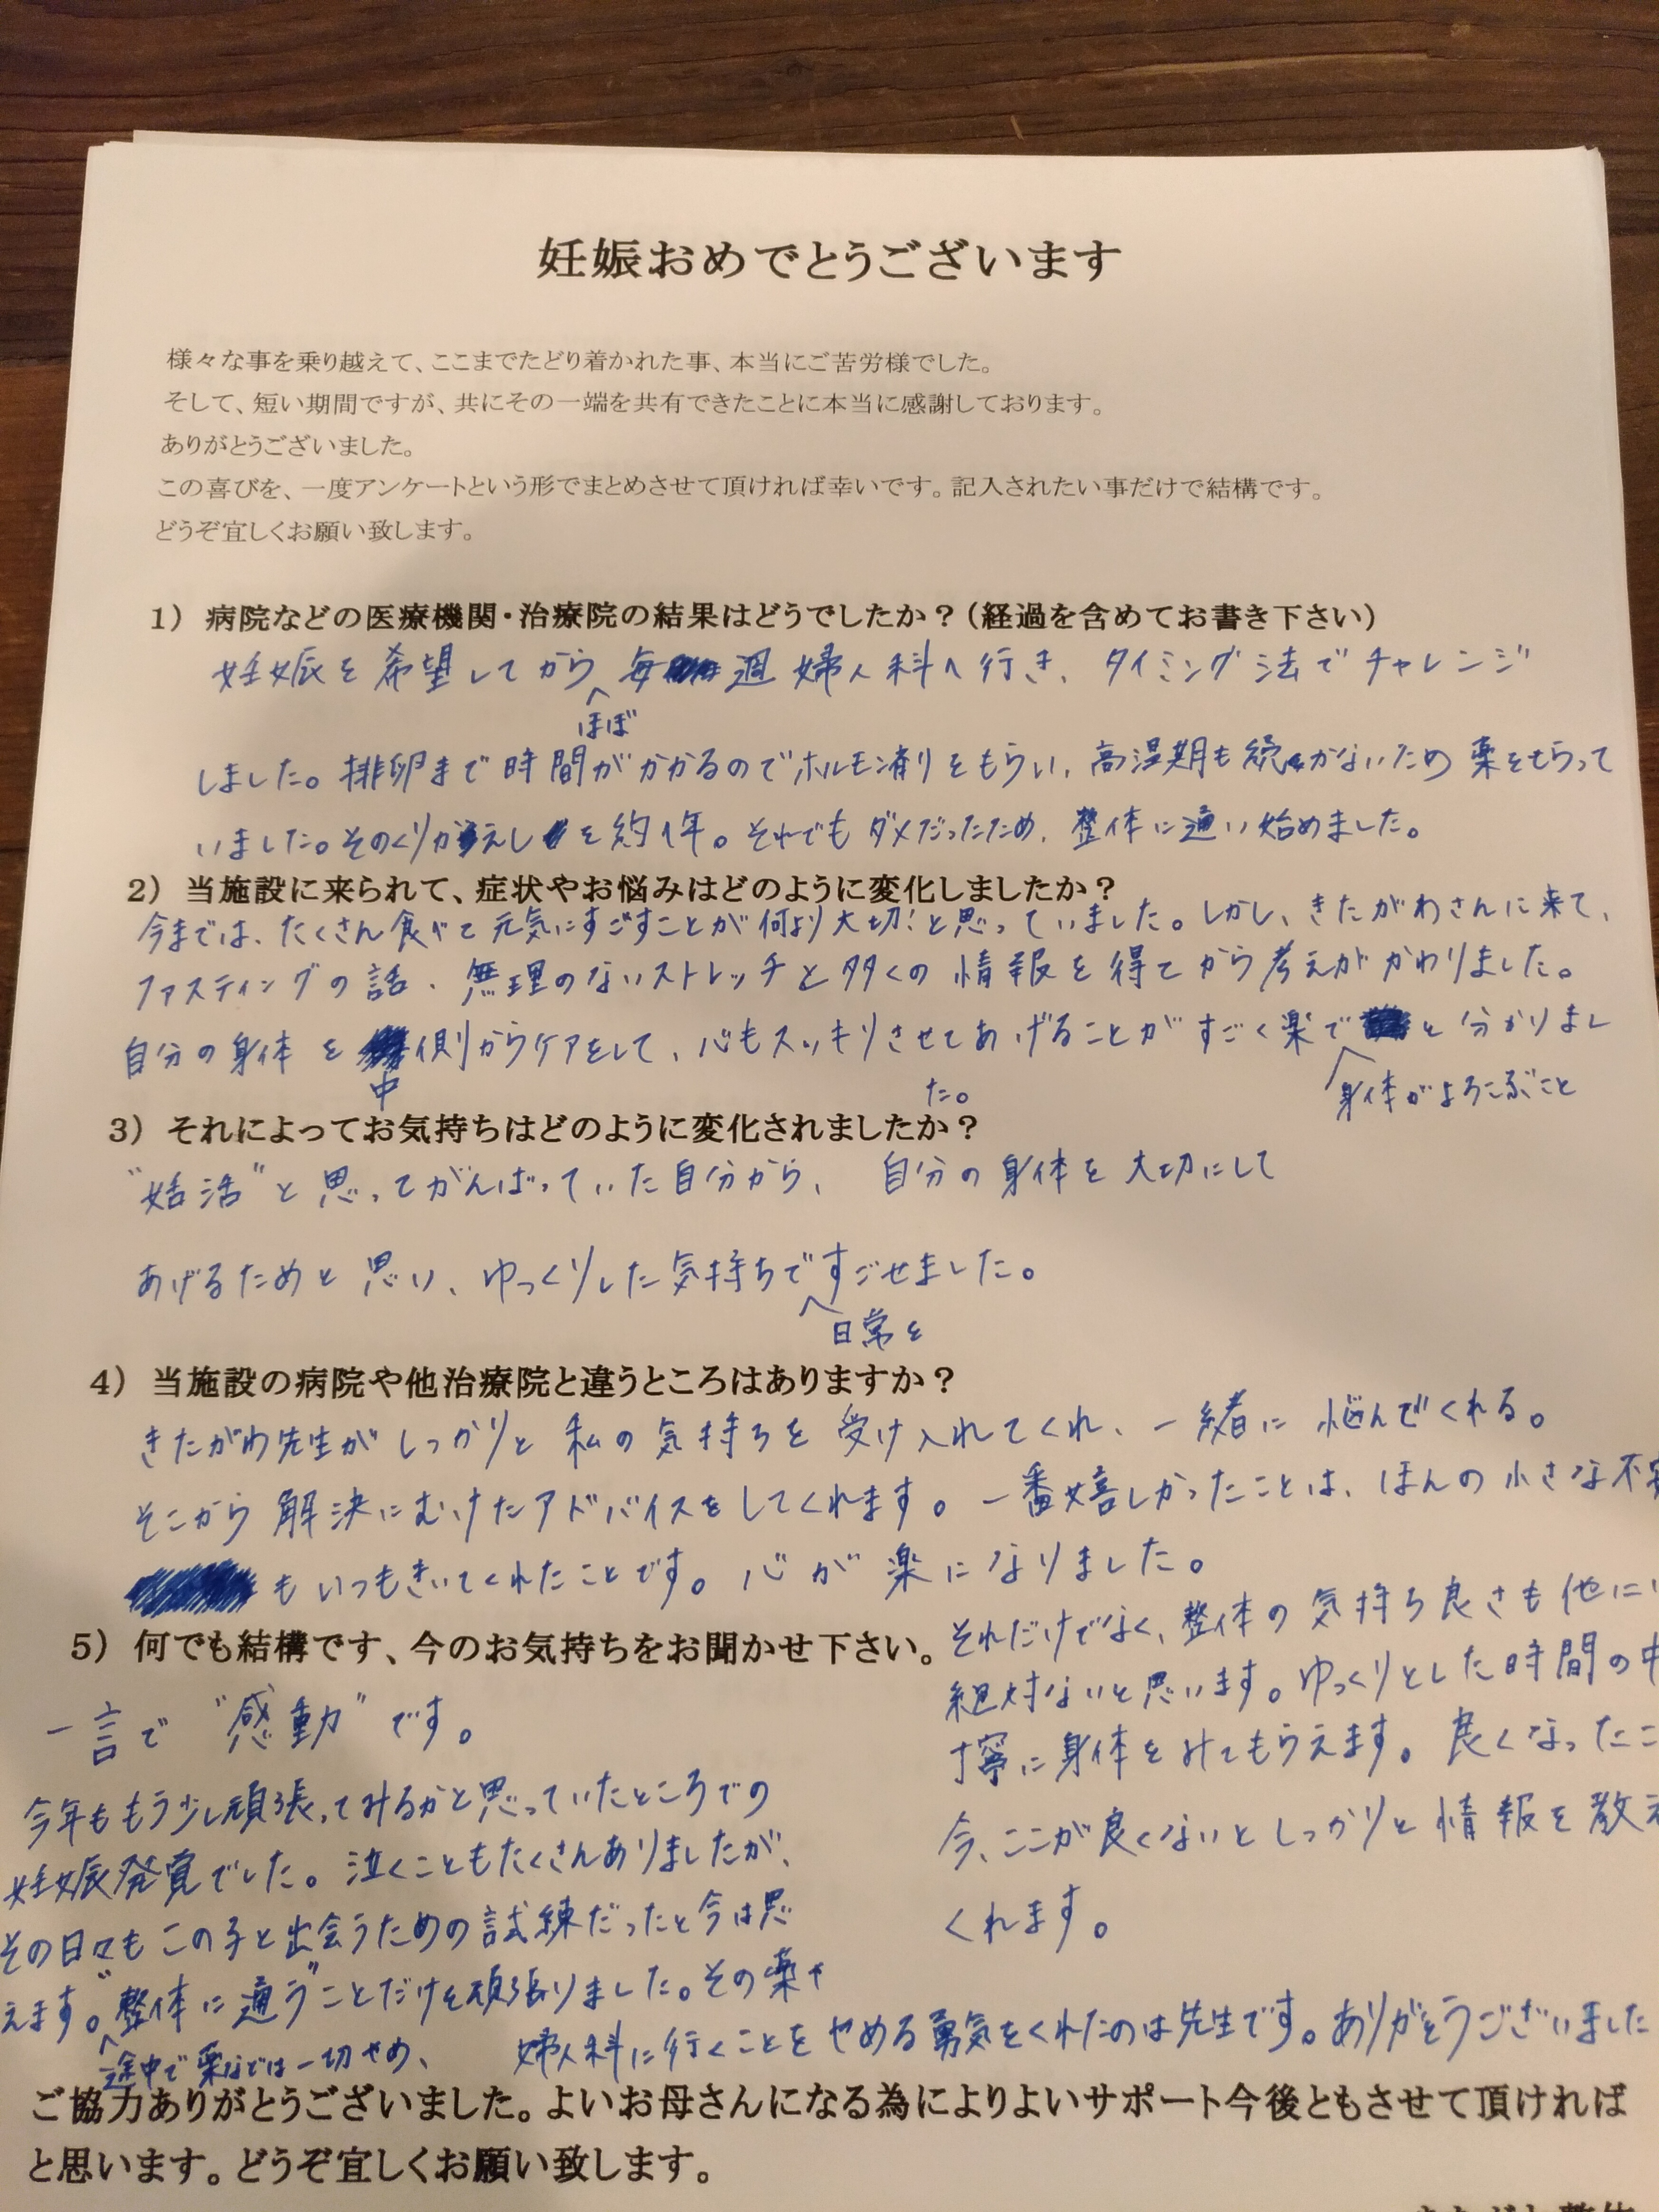 妊娠おめでとうございます
様々な事を乗り越えて、ここまでたどり着かれた事、本当にご苦労様でした。
そして、短い期間ですが、共にその一端を共有できたことに本当に感謝しております。
ありがとうございました。
この喜びを、一度アンケートという形でまとめさせて頂ければ幸いです。記入されたい事だけで結構です。
どうぞ宜しくお願い致します。
1）病院などの医療機関・治療院の結果はどうでしたか？（経過を含めてお書き下さい）
妊娠を希望してから毎週婦人科へ行き、タイミング法でチャレンジ
ほぼ
しました。排卵まで時間がかかるのでホルモン剤をもらい、高温期も続かないため薬をもらって
いました。そのくりかえしを約1年。それでもダメだったため、整体に通い始めました。
2）当施設に来られて、症状やお悩みはどのように変化しましたか？
今までは、たくさん食べて元気にすごすことが何より大切！と思っていました。しかし、きたがわさんに来て、
ファスティングの話、無理のないストレッチと多くの情報を得てから考えがかわりました。
自分の身体を側からケアをして、心もスッキリさせてあげることがすごく楽でと分かりまし
中
た。
身体がよろこぶこと
3）それによってお気持ちはどのように変化されましたか？
“妊活”と思ってがんばっていた自分から、自分の身体を大切にして
あげるためと思い、ゆっくりした気持ちですごせました。
日常を
4）当施設の病院や他治療院と違うところはありますか？
きたがわ先生がしっかりと私の気持ちを受け入れてくれ、一緒に悩んでくれる。
そこから解決にむけたアドバイスをしてくれます。一番嬉しかったことは、ほんの小さな不安
もいつもきいてくれたことです。心が楽になりました。
それだけでなく、整体の気持ち良さも他には
絶対ないと思います。ゆっくりとした時間の中
丁寧に身体をみてもらえます。良くなったこ
今、ここが良くないとしっかりと情報を教え
くれます。
5）何でも結構です、今のお気持ちをお聞かせ下さい。
一言で“感動”です。
今年ももう少し頑張ってみるかと思っていたところでの
妊娠発覚でした。泣くこともたくさんありましたが、
その日々もこの子と出会うための試練だったと今は思
えます。“整体に通う”ことだけを頑張りました。その薬や
途中で薬などは一切やめ、
婦人科に行くことをやめる勇気をくれたのは先生です。ありがとうございました
ご協力ありがとうございました。よいお母さんになる為によりよいサポート今後ともさせて頂ければ
と思います。どうぞ宜しくお願い致します。